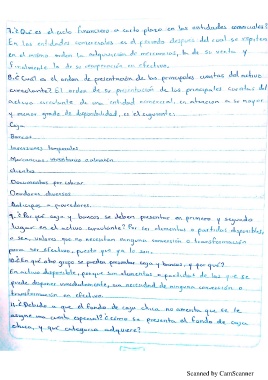 7.¿Qué es el ciclo financiero a corto plazo en las entidades comerciales?
En las entidades comerciales es el periodo después del cual se repiten
en el mismo orden la adquisición de mercancías, la de su venta y
finalmente la de su recuperación en efectivo.
8.¿Cuál es el orden de presentación de las principales cuentas del activo
circulante? El orden de su presentación de las principales cuentas del
activo circulante de una entidad comercial, en atención a su mayor
y menor grado de disponibilidad, es el siguiente:
Caja
Bancos
Inversiones temporales
Mercancías, inventarios o almacén
clientes
Documentos por cobrar
Deudores diversos
Anticipos a proveedores.
9.¿Por qué caja y bancos se deben presentar en primero y segundo
lugar en el activo circulante? Por ser elementos o partidas disponibles,
o sea, valores que no necesitan ninguna conversión o transformación
para ser efectivo, puesto que ya lo son.
10.¿En qué otro grupo se pueden presentar caja y bancos, y por qué?
En activo disponible, porque son elementos o partidas de las que se
puede disponer inmediatamente, sin necesidad de ninguna conversión o
transformación en efectivo.
11.¿Debido a que el fondo de caja chica no amerita que se le
asigne una cuenta especial? ¿cómo se presenta el fondo de caja
chica, y qué categoría adquiere?
Scanned by CamScanner